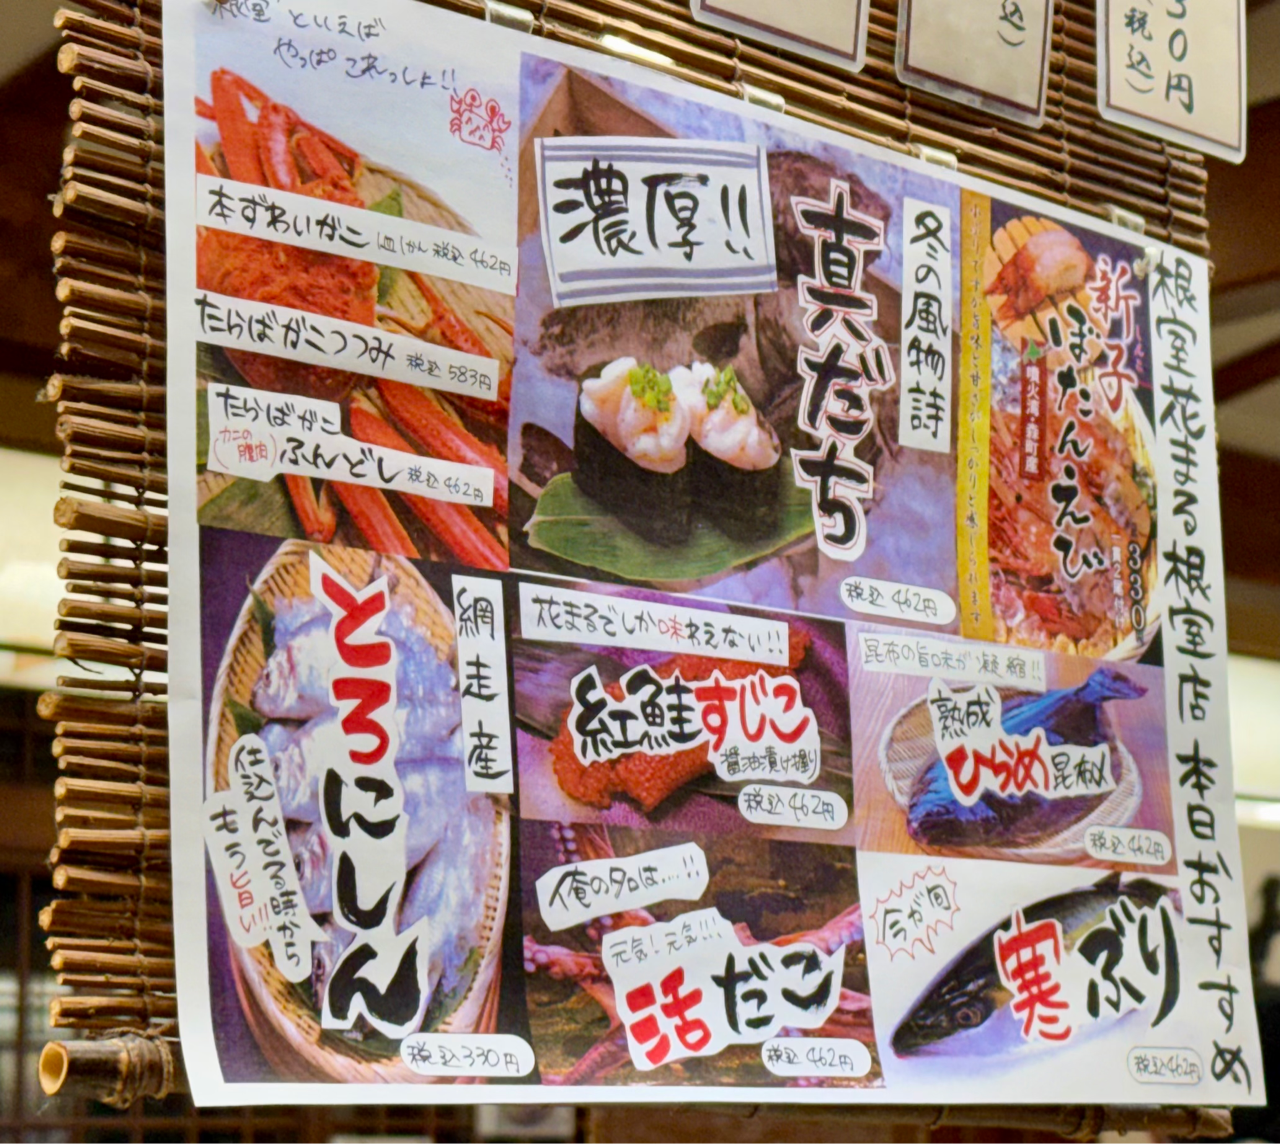 30円
(税込)
込)
根室といえば
やっぱこれっしょ!!
本ずわいがに 一皿1かん 税込462円
たらばがにつつみ 税込583円
たらばがに
(カニの腹肉)
ふんどし 税込462円
濃厚!!
冬の風物詩
真だち
税込462円
新子
ぼたんえび
噴火湾・森町産
330
根室花まる根室店 本日おすすめ
網走産
とろにしん
仕込んでる時から
もう旨い!!
税込330円
花まるでしか味わえない!!
紅鮭すじこ
醤油漬け握り
税込462円
昆布の旨味が凝縮!!
熟成
ひらめ昆布〆
税込462円
俺のタコは....!!
元気!元気!!!
活だこ
税込462円
今が旬
寒ぶり
税込462円